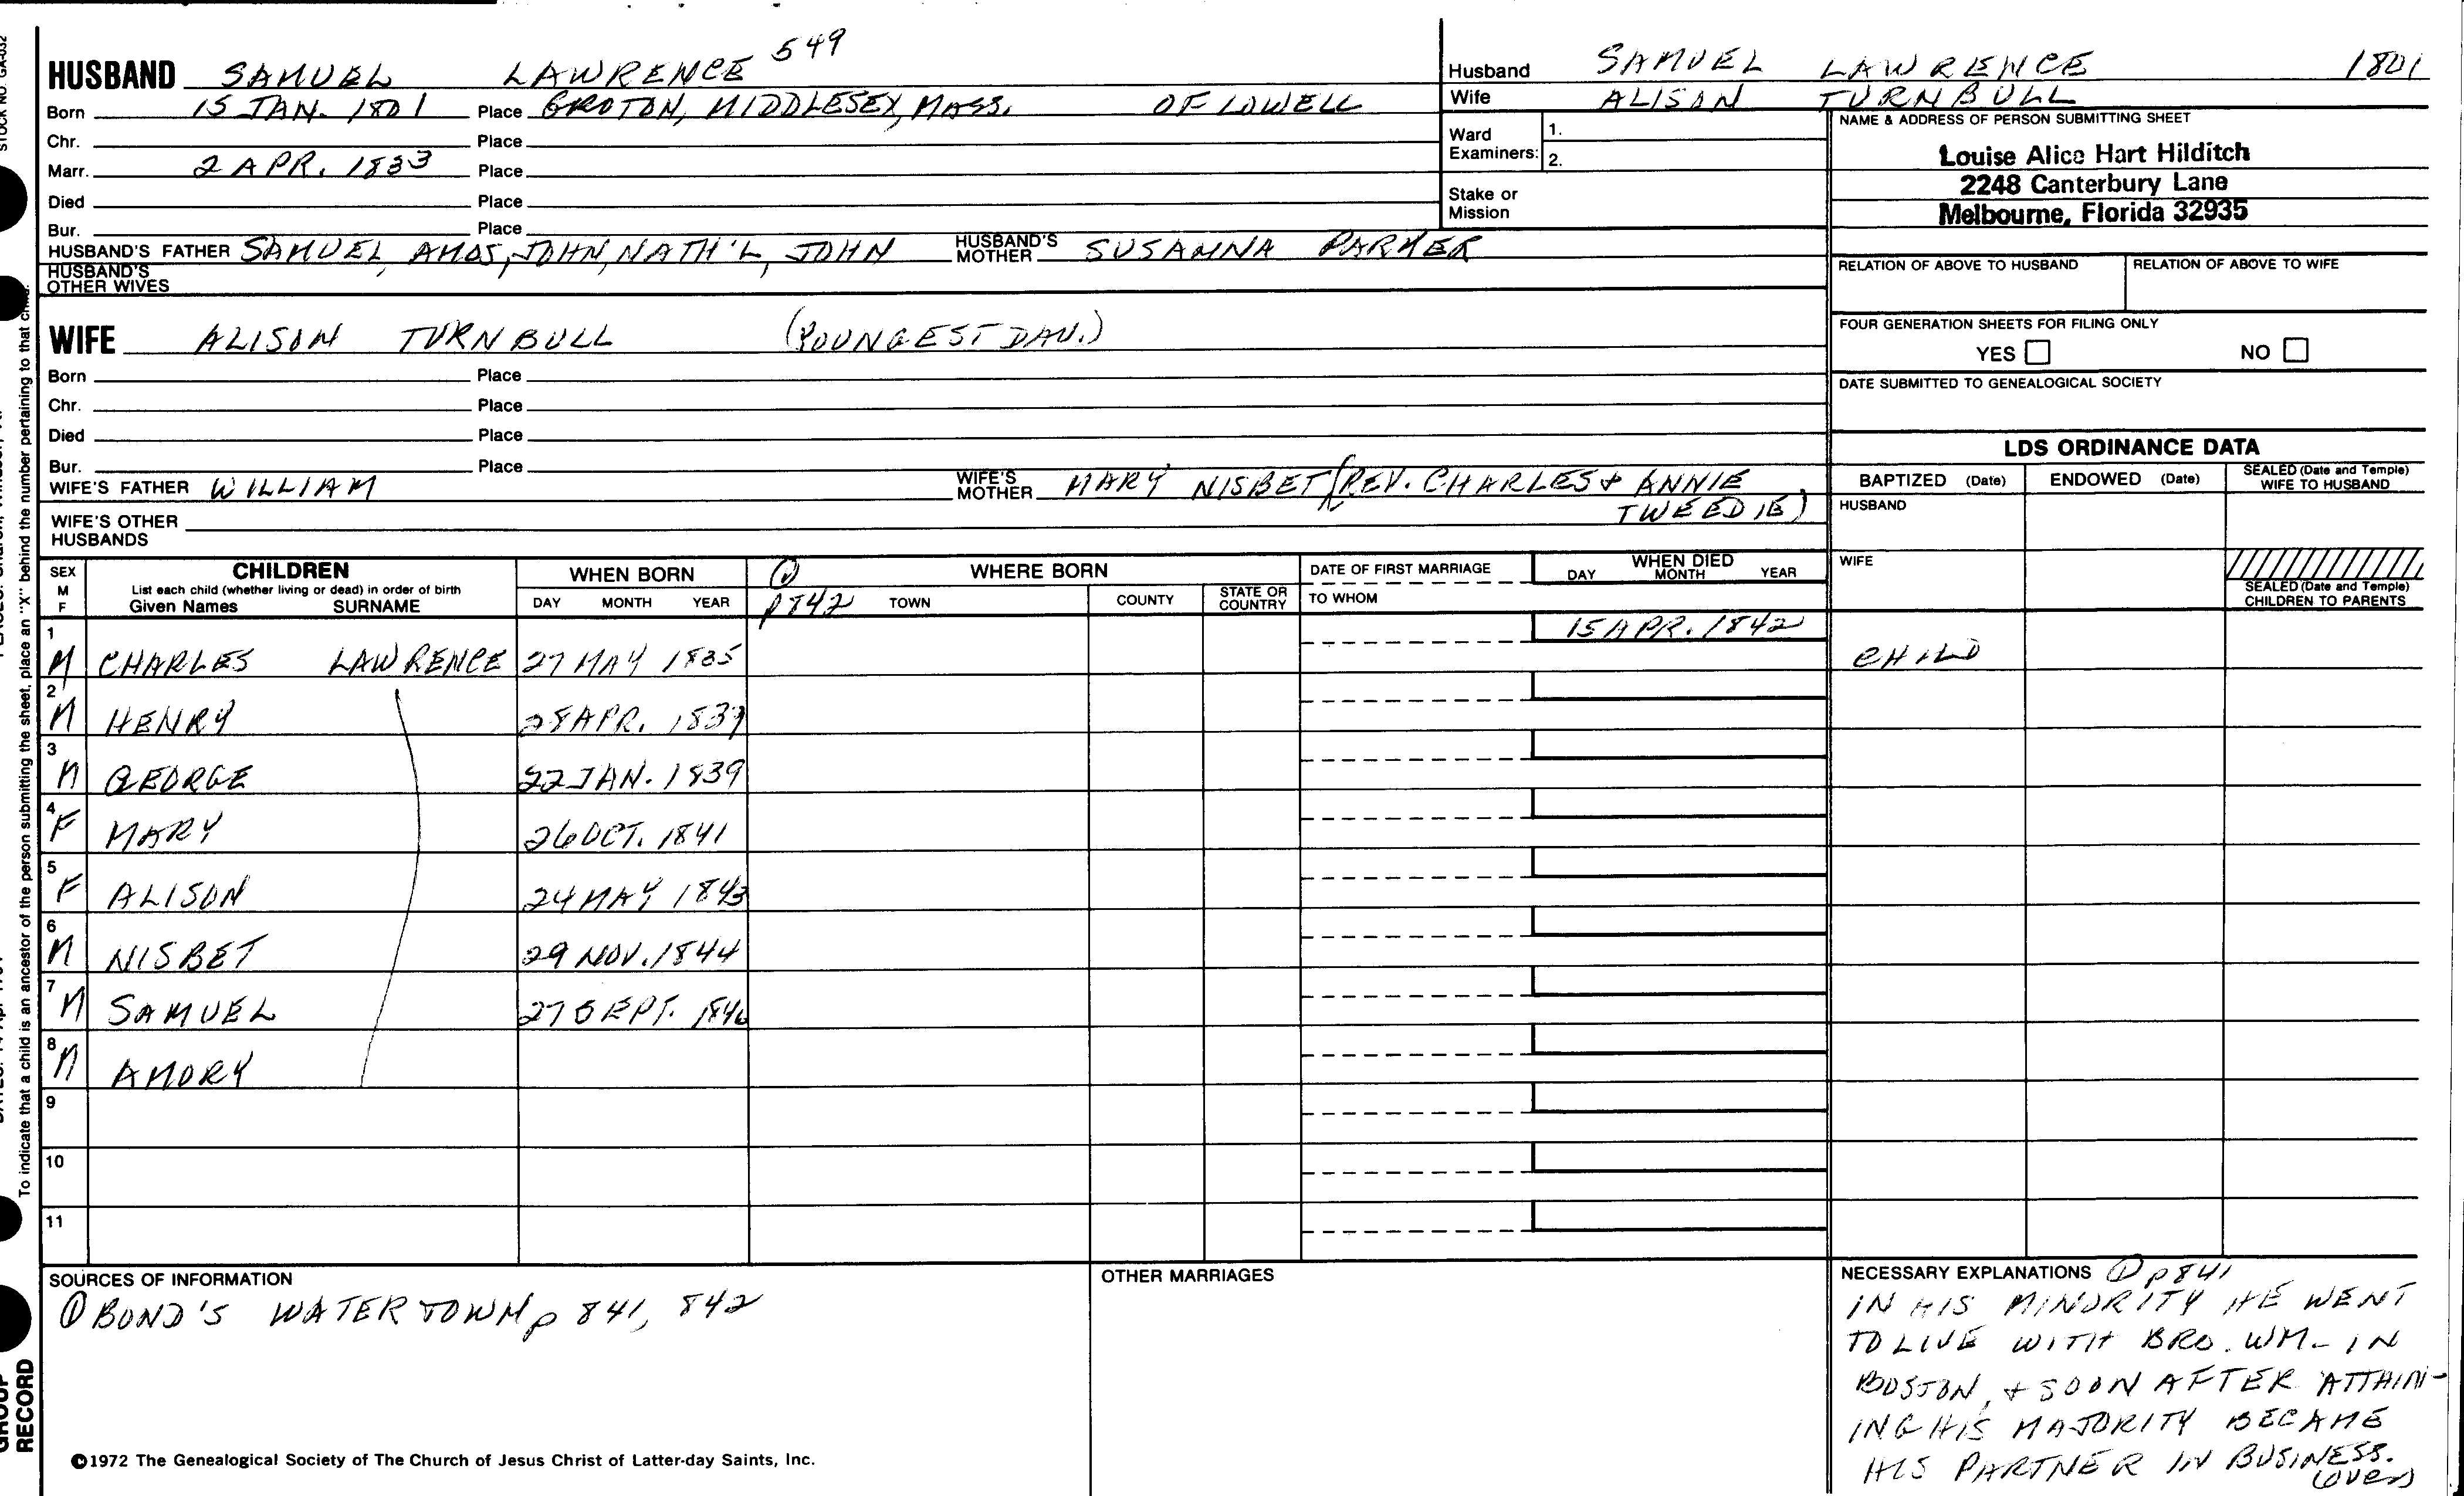 HUSBAND SAMUEL LAWRENCE 549
Born 15 JAN. 1801 Place GROTON, MIDDLESEX, MASS. OF LOWELL
Chr. Place
Marr. 2 APR. 1833 Place
Died Place
Bur. Place
HUSBAND'S FATHER SAMUEL, AMOS, JOHN, NATH'L, JOHN HUSBAND'S MOTHER SUSANNA PARKER
HUSBAND'S OTHER WIVES
WIFE ALISON TURNBULL (YOUNGEST DAU.)
Born Place
Chr. Place
Died Place
Bur. Place
WIFE'S FATHER WILLIAM WIFE'S MOTHER MARY NISBET (REV. CHARLES & ANNIE
TWEEDIE)
WIFE'S OTHER HUSBANDS
Husband SAMUEL LAWRENCE 1801
Wife ALISON TURNBULL
Ward Examiners: 1.
2.
Stake or Mission
NAME & ADDRESS OF PERSON SUBMITTING SHEET
Louise Alice Hart Hilditch
2248 Canterbury Lane
Melbourne, Florida 32935
RELATION OF ABOVE TO HUSBAND RELATION OF ABOVE TO WIFE
FOUR GENERATION SHEETS FOR FILING ONLY
YES NO
DATE SUBMITTED TO GENEALOGICAL SOCIETY
LDS ORDINANCE DATA
BAPTIZED (Date) ENDOWED (Date) SEALED (Date and Temple) WIFE TO HUSBAND
HUSBAND
WIFE
SEALED (Date and Temple) CHILDREN TO PARENTS
SEX M F
CHILDREN
List each child (whether living or dead) in order of birth
Given Names SURNAME
WHEN BORN
DAY MONTH YEAR
① p 842
WHERE BORN
TOWN COUNTY STATE OR COUNTRY
DATE OF FIRST MARRIAGE
TO WHOM
WHEN DIED
DAY MONTH YEAR
1 M CHARLES LAWRENCE 27 MAY 1835 15 APR. 1842 CHILD
2 M HENRY 28 APR. 1837
3 M GEORGE 22 JAN. 1839
4 F MARY 26 OCT. 1841
5 F ALISON 24 MAY 1843
6 M NISBET 29 NOV. 1844
7 M SAMUEL 27 SEPT. 1846
8 M AMORY
9
10
11
SOURCES OF INFORMATION
① BOND'S WATERTOWN p 841, 842
OTHER MARRIAGES
NECESSARY EXPLANATIONS ① p 841
IN HIS MINORITY HE WENT
TO LIVE WITH BRO. WM. IN
BOSTON, & SOON AFTER ATTAIN-
ING HIS MAJORITY BECAME
HIS PARTNER IN BUSINESS.
(over)
©1972 The Genealogical Society of The Church of Jesus Christ of Latter-day Saints, Inc.
STOCK NO. GA-032
To indicate that a child is an ancestor of the person submitting the sheet, place an "X" behind the number pertaining to that child.
GROUP
RECORD